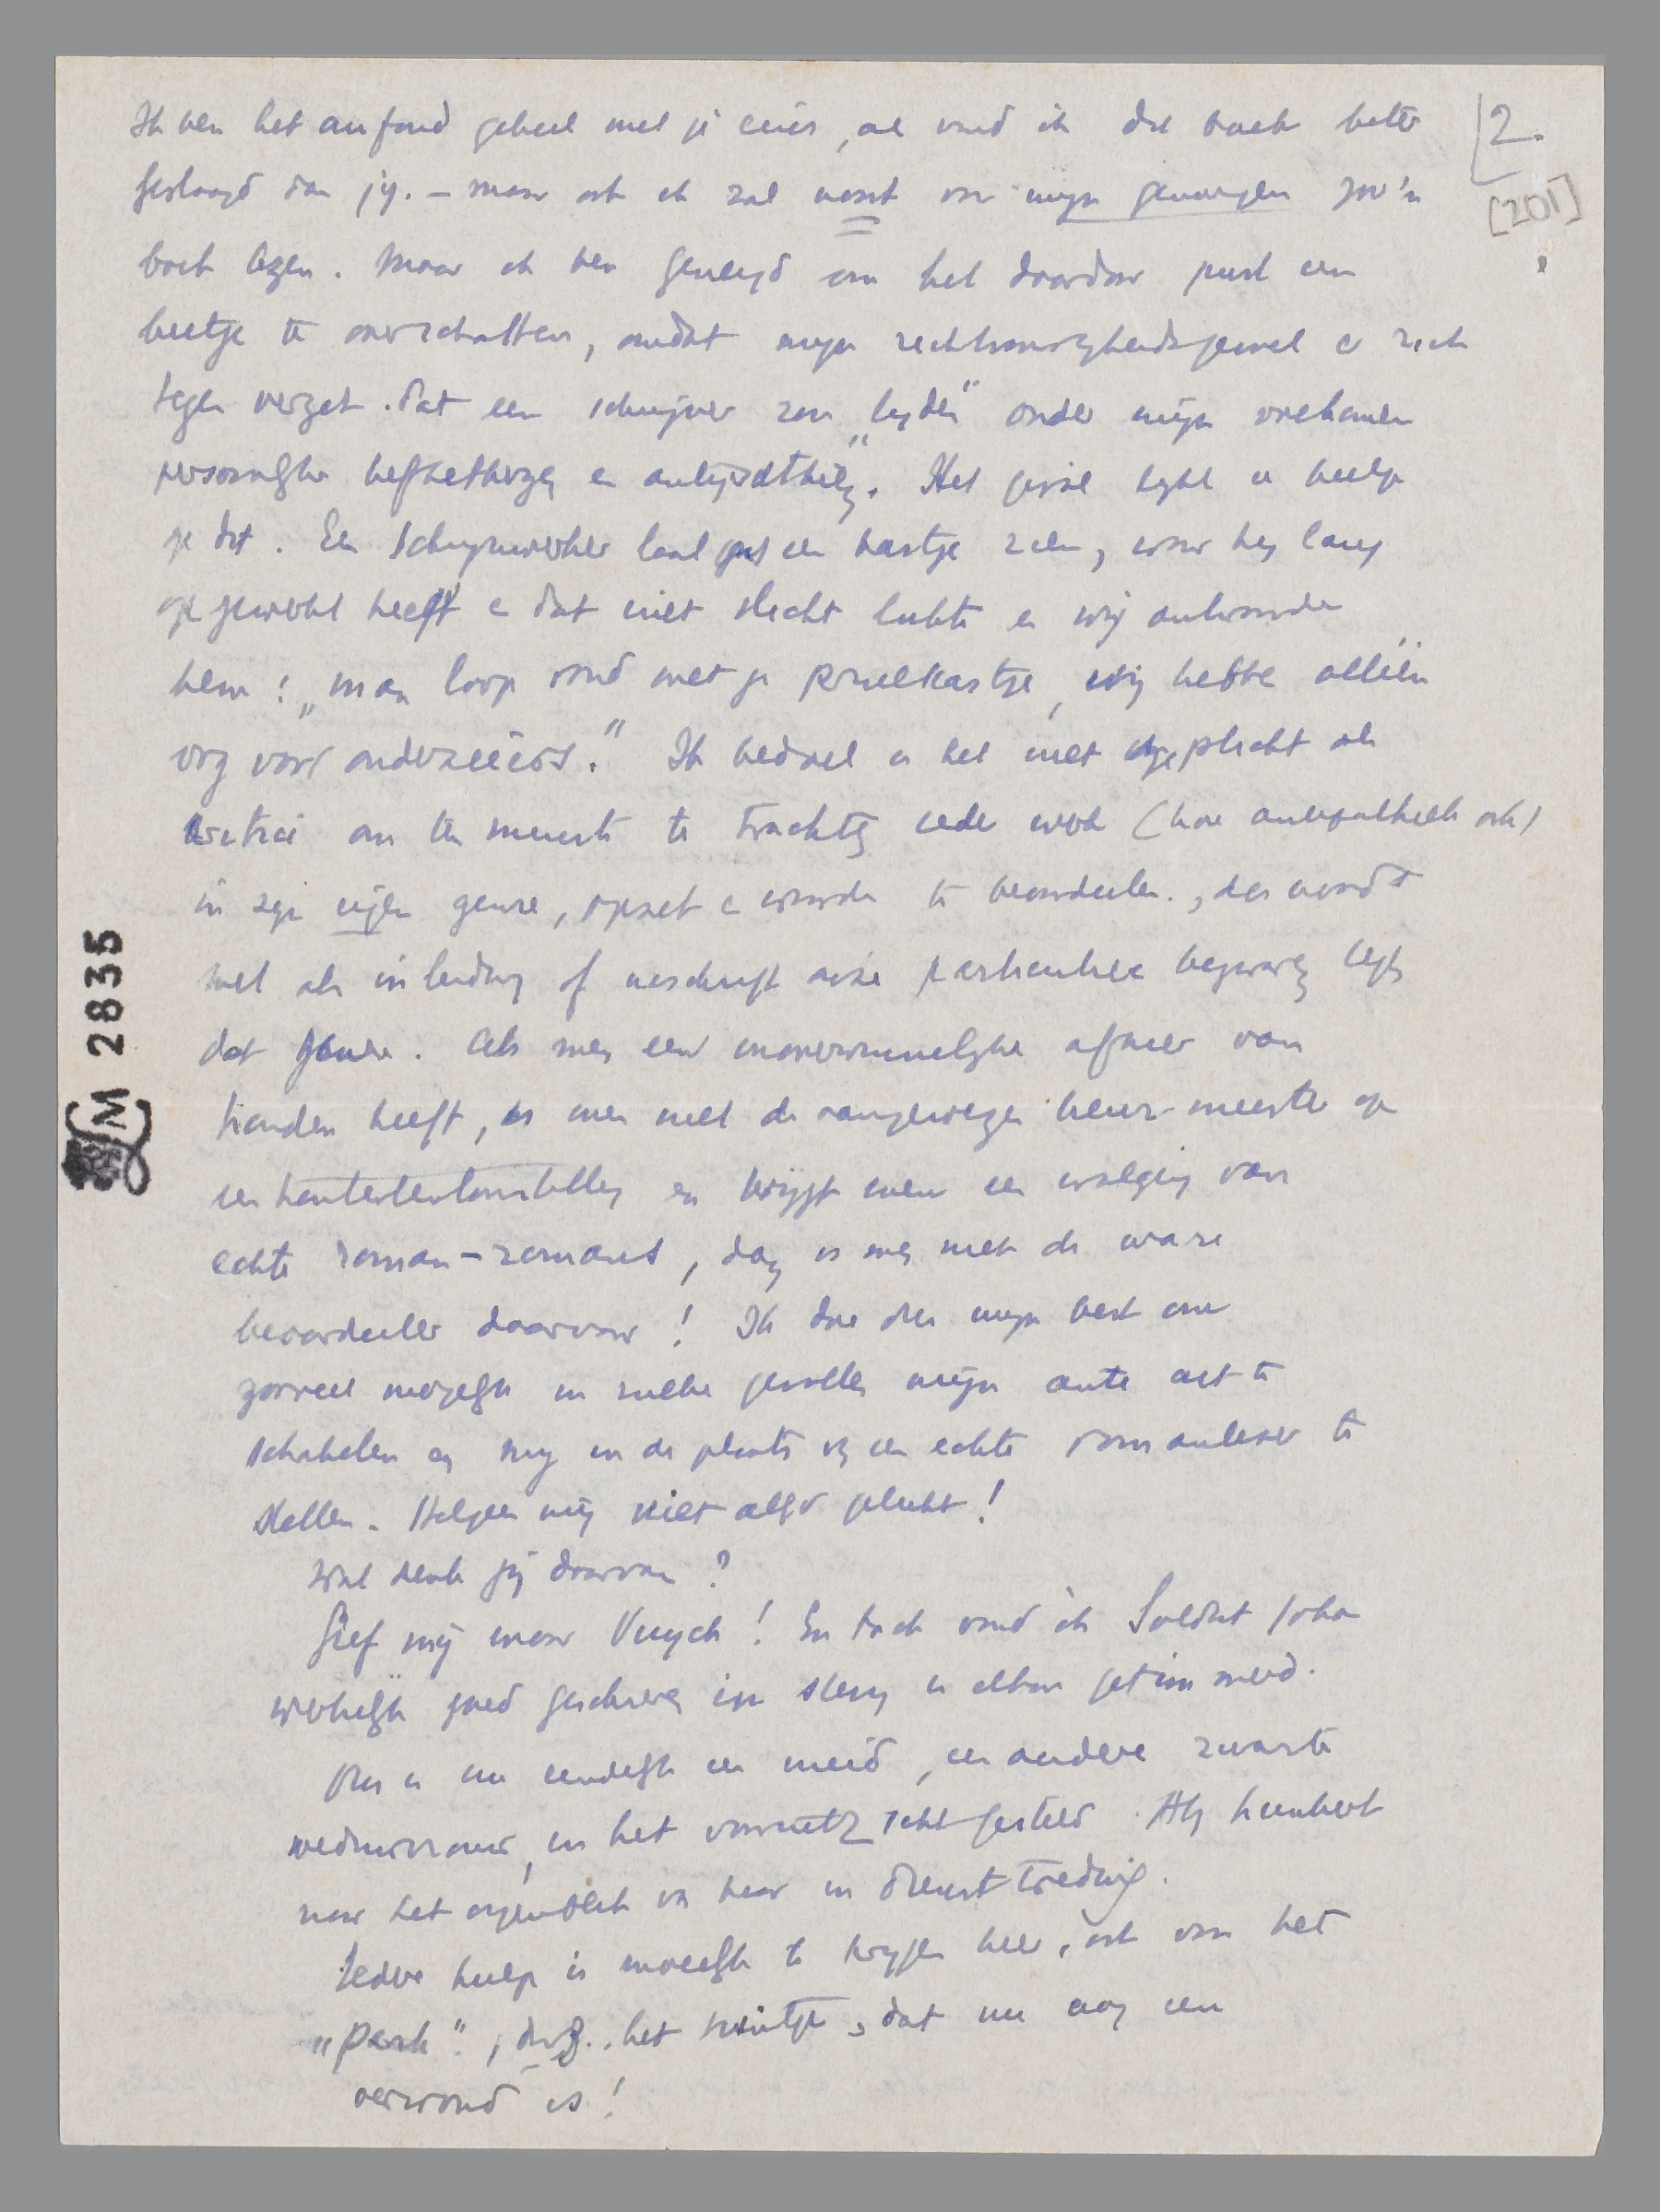 Ik ben het au fond geheel met je eens, al vind ik dit boek beter
geslaagd dan jij. – maar ook ik zal nooit voor mijn genoegen zoo'n
boek lezen. Maar ik ben geneigd om het daardoor juist een
beetje te overschatten, omdat mijn rechtvaardigheidsgevoel er zich
tegen verzet. Dat een schrijver zou „lijden" onder mijn volkomen
persoonlijke liefhebberij en antipathie. Het geval lijkt een beetje
op dit. Een schrijnwerker laat ons een kastje zien, waar hij lang
op gewerkt heeft en dat niet slecht lukte en wij antwoorden
hem: „man loop rond met je prulkastje, wij hebben alléén
oog voor onderzeeërs." Ik bedoel is het niet de plicht als
criticus om ten minste te trachten ieder werk (hoe antipathiek ook)
in zijn eigen genre, opzet en waarde te beoordeelen.,
met als inleiding of naschrift onze particuliere tegen
dat genre. Als men een onoverwinnelijke afkeer van
honden heeft, is men niet de aangewezen keurmeester op
een hondententoonstelling en krijgt men een walging van
echte roman-romans, dan is men niet de ware
beoordeeler daarvoor! Ik doe dus mijn best om
zooveel mogelijk in zulke gevallen mijn uit te
schakelen en mij in de plaats v. een echte romanlezer te
stellen. Hetgeen mij niet altijd gelukt!
Wat denk jij daarvan?
Geef mij maar Vuyck! En toch vind ik Soldaat
werkelijk goed geschreven en getimmerd.
Er is nu eindelijk een meid, een andere zwarte
weduwvrouw, in het vooruitzicht gesteld.
naar het oogenblik van haar in dienst treding.
Iedere hulp is moeilijk te krijgen hier, ook voor het
„Park", d.w.z. het tuintje, dat nu nog een
is!
2.
[201]
LM 2835